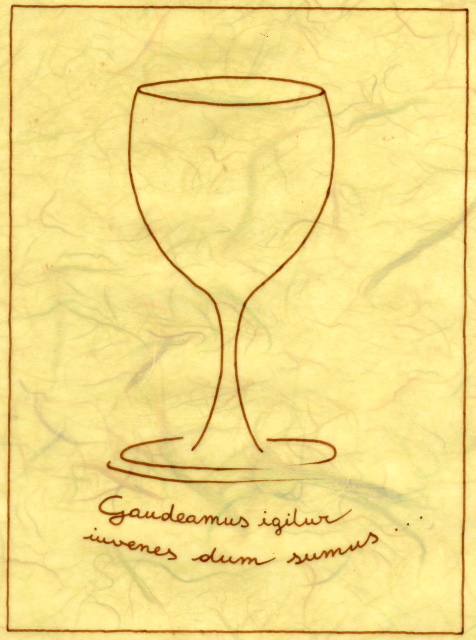 Gaudeamus igitur
iuvenes dum sumus...